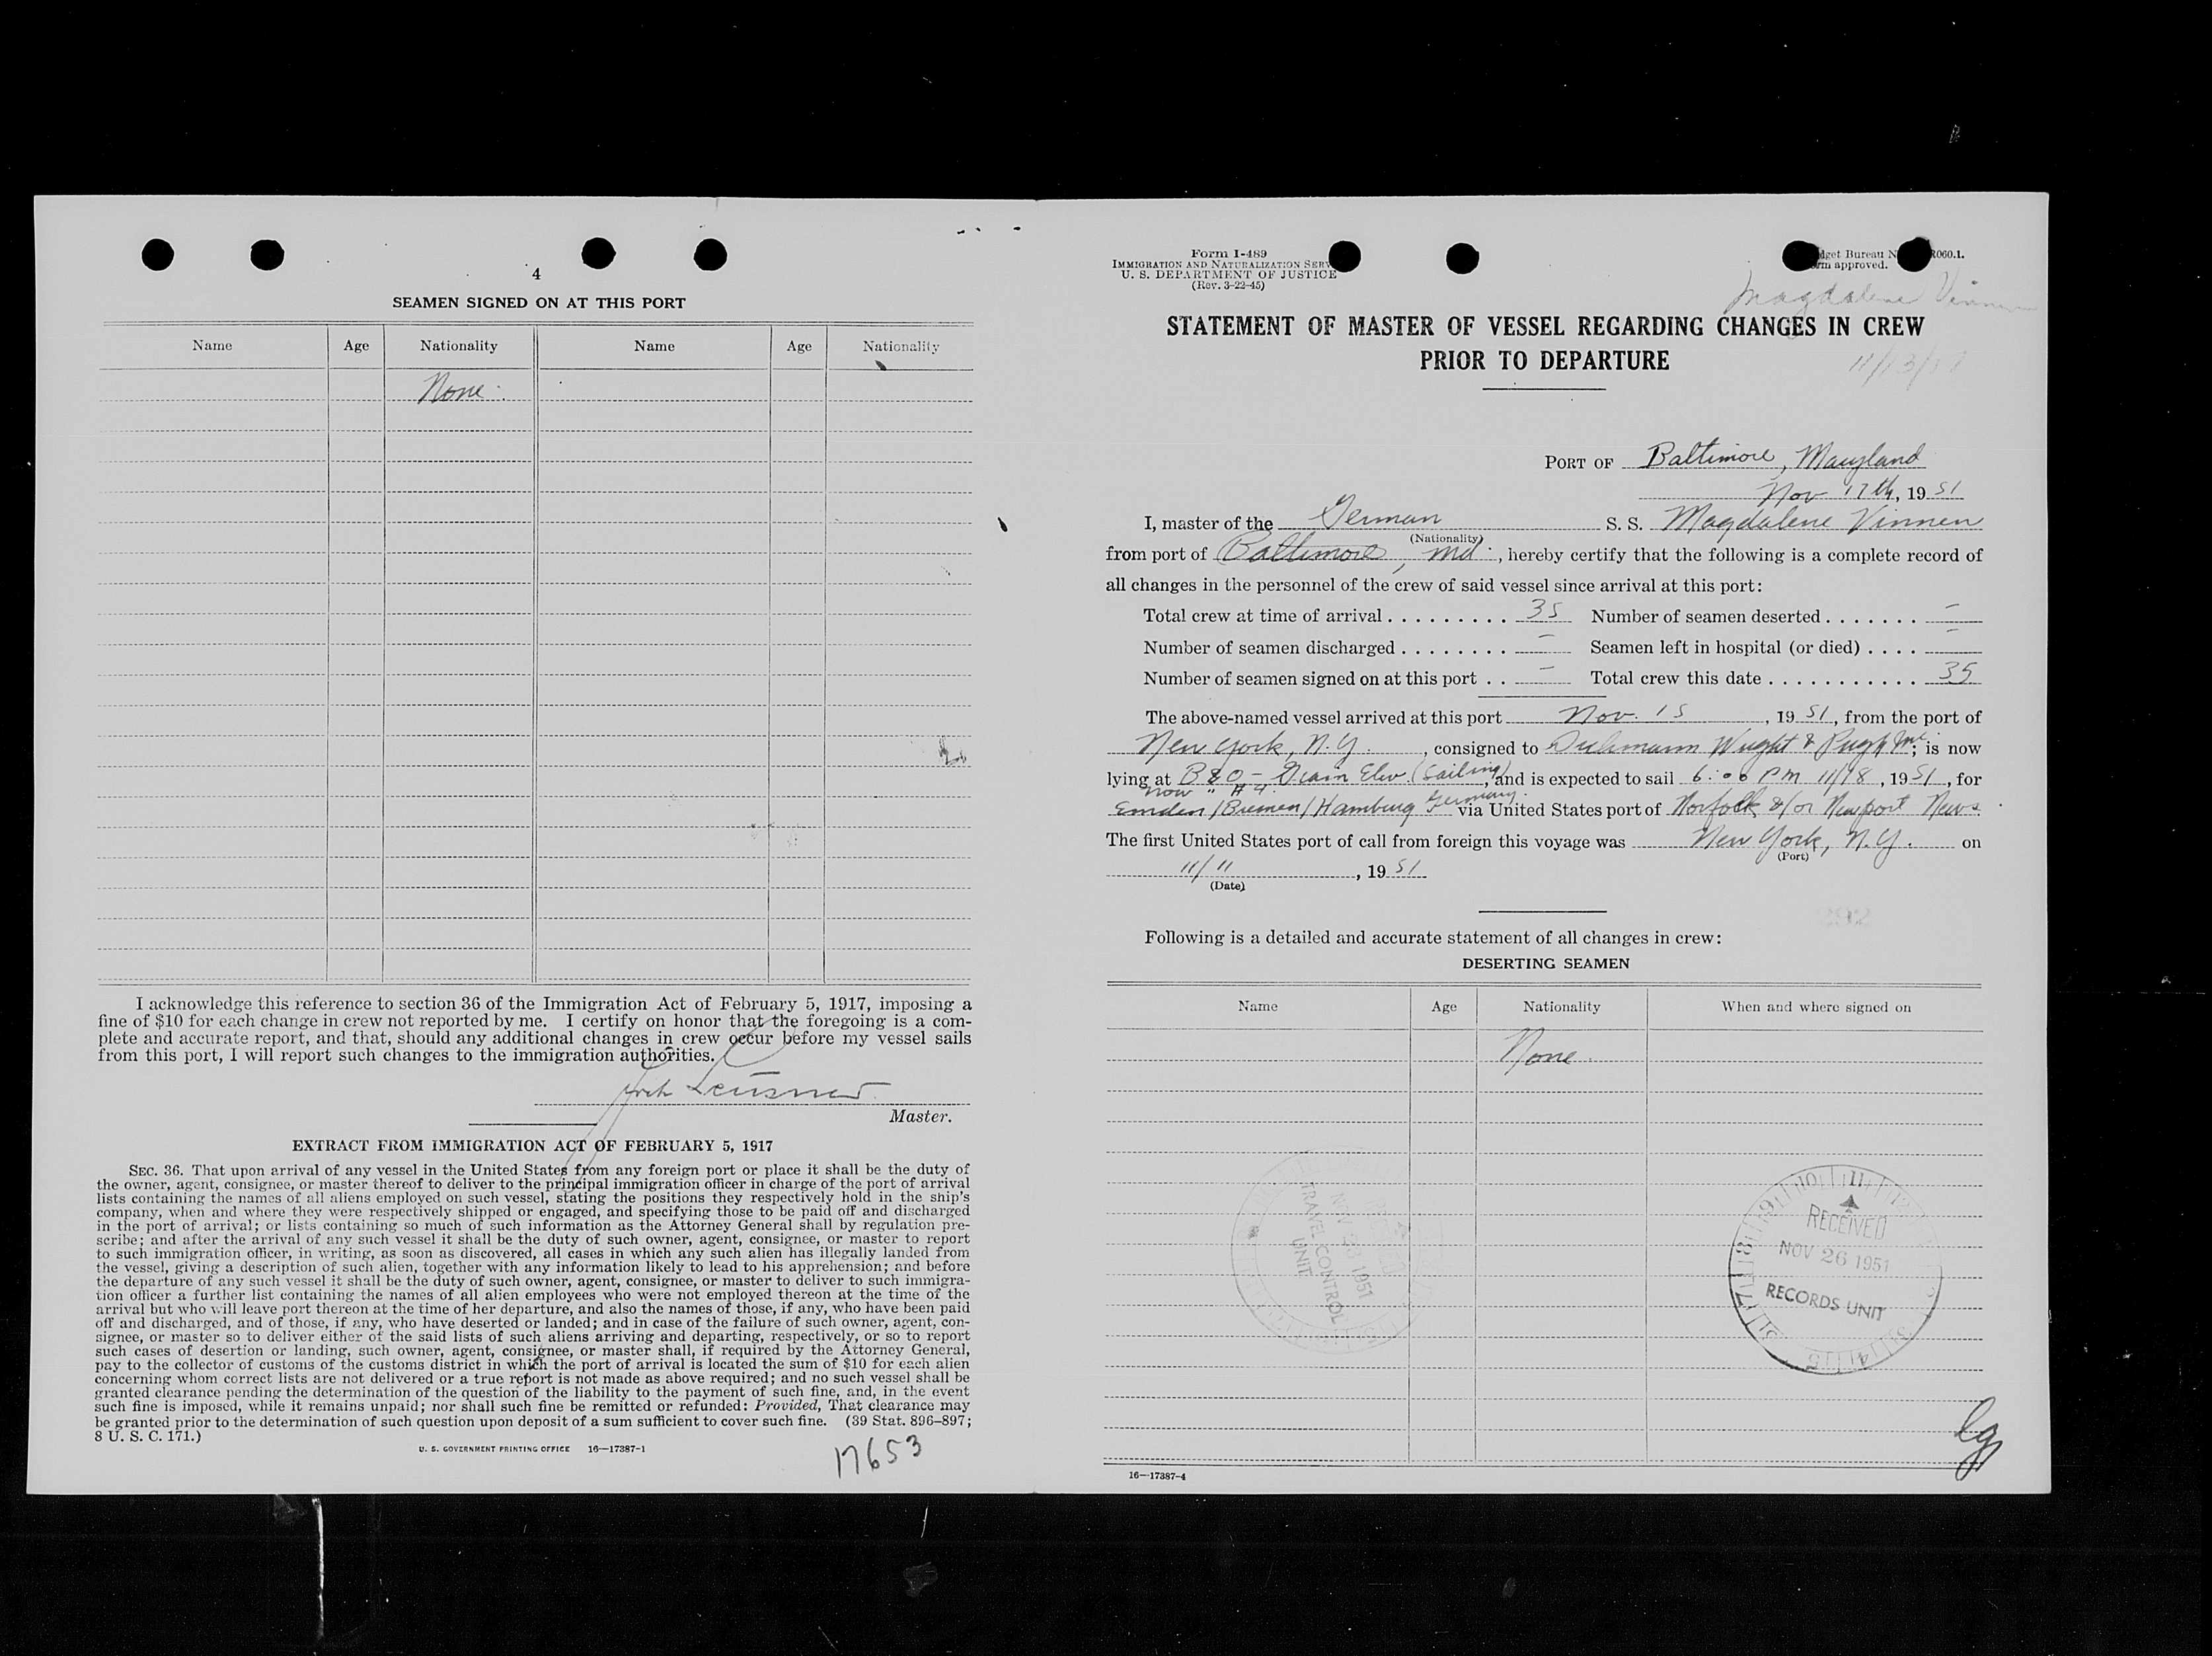 4
SEAMEN SIGNED ON AT THIS PORT
Name Age Nationality Name Age Nationality
None
I acknowledge this reference to section 36 of the Immigration Act of February 5, 1917, imposing a
fine of $10 for each change in crew not reported by me. I certify on honor that the foregoing is a com-
plete and accurate report, and that, should any additional changes in crew occur before my vessel sails
from this port, I will report such changes to the immigration authorities.
Master.
EXTRACT FROM IMMIGRATION ACT OF FEBRUARY 5, 1917
SEC. 36. That upon arrival of any vessel in the United States from any foreign port or place it shall be the duty of
the owner, agent, consignee, or master thereof to deliver to the principal immigration officer in charge of the port of arrival
lists containing the names of all aliens employed on such vessel, stating the positions they respectively hold in the ship's
company, when and where they were respectively shipped or engaged, and specifying those to be paid off and discharged
in the port of arrival; or lists containing so much of such information as the Attorney General shall by regulation pre-
scribe; and after the arrival of any such vessel it shall be the duty of such owner, agent, consignee, or master to report
to such immigration officer, in writing, as soon as discovered, all cases in which any such alien has illegally landed from
the vessel, giving a description of such alien, together with any information likely to lead to his apprehension; and before
the departure of any such vessel it shall be the duty of such owner, agent, consignee, or master to deliver to such immigra-
tion officer a further list containing the names of all alien employees who were not employed thereon at the time of the
arrival but who will leave port thereon at the time of her departure, and also the names of those, if any, who have been paid
off and discharged, and of those, if any, who have deserted or landed; and in case of the failure of such owner, agent, con-
signee, or master so to deliver either of the said lists of such aliens arriving and departing, respectively, or so to report
such cases of desertion or landing, such owner, agent, consignee, or master shall, if required by the Attorney General,
pay to the collector of customs of the customs district in which the port of arrival is located the sum of $10 for each alien
concerning whom correct lists are not delivered or a true report is not made as above required; and no such vessel shall be
granted clearance pending the determination of the question of the liability to the payment of such fine, and, in the event
such fine is imposed, while it remains unpaid; nor shall such fine be remitted or refunded: Provided, That clearance may
be granted prior to the determination of such question upon deposit of a sum sufficient to cover such fine. (39 Stat. 896–897;
8 U. S. C. 171.)
U. S. GOVERNMENT PRINTING OFFICE 16—17387-1
17653
Form I-489
IMMIGRATION AND NATURALIZATION SERV
U. S. DEPARTMENT OF JUSTICE
(Rev. 3-22-45)
dget Bureau N R060.1.
rm approved.
Magdalene Vinnen
STATEMENT OF MASTER OF VESSEL REGARDING CHANGES IN CREW
PRIOR TO DEPARTURE
PORT OF Baltimore, Maryland
Nov 17th, 19 51
I, master of the German S. S. Magdalene Vinnen
(Nationality)
from port of Baltimore, Md., hereby certify that the following is a complete record of
all changes in the personnel of the crew of said vessel since arrival at this port:
Total crew at time of arrival 35 Number of seamen deserted –
Number of seamen discharged – Seamen left in hospital (or died) –
Number of seamen signed on at this port – Total crew this date 35
The above-named vessel arrived at this port Nov. 15, 19 51, from the port of
New York, N.Y., consigned to Wright & Pugh Inc; is now
lying at B & O – Grain Elev. (Sailing) and is expected to sail 6:00 PM 11/18, 19 51, for
now " # 4 Germany.
Emden / Bremen / Hamburg via United States port of Norfolk &/or Newport News.
The first United States port of call from foreign this voyage was New York, N.Y. on
(Port)
11/11, 19 51
(Date)
292
Following is a detailed and accurate statement of all changes in crew:
DESERTING SEAMEN
Name Age Nationality When and where signed on
None
NOV 23 1951
TRAVEL CONTROL
UNIT
RECEIVED
NOV 26 1951
RECORDS UNIT
16—17387-4